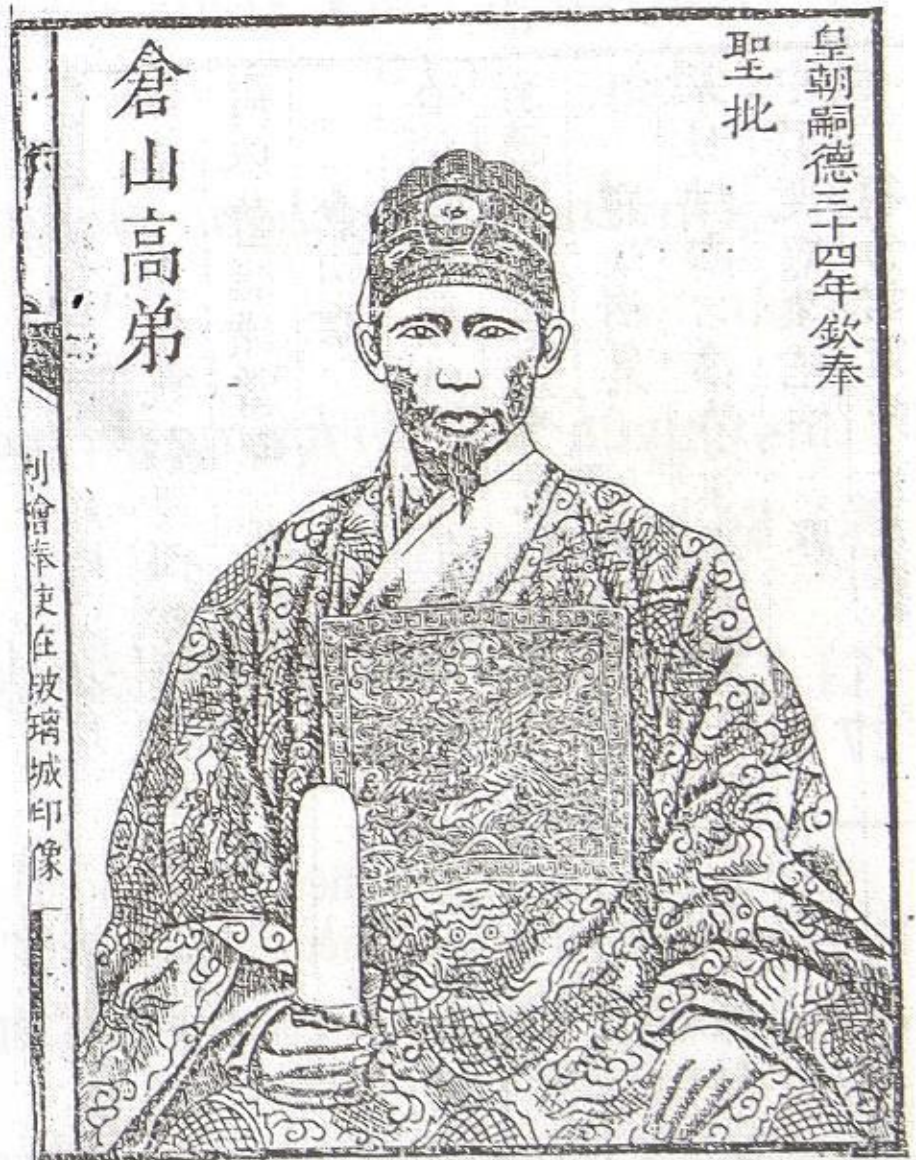 皇朝嗣德三十四年欽奉
聖批
倉山高弟
奉使在玻璃城印像